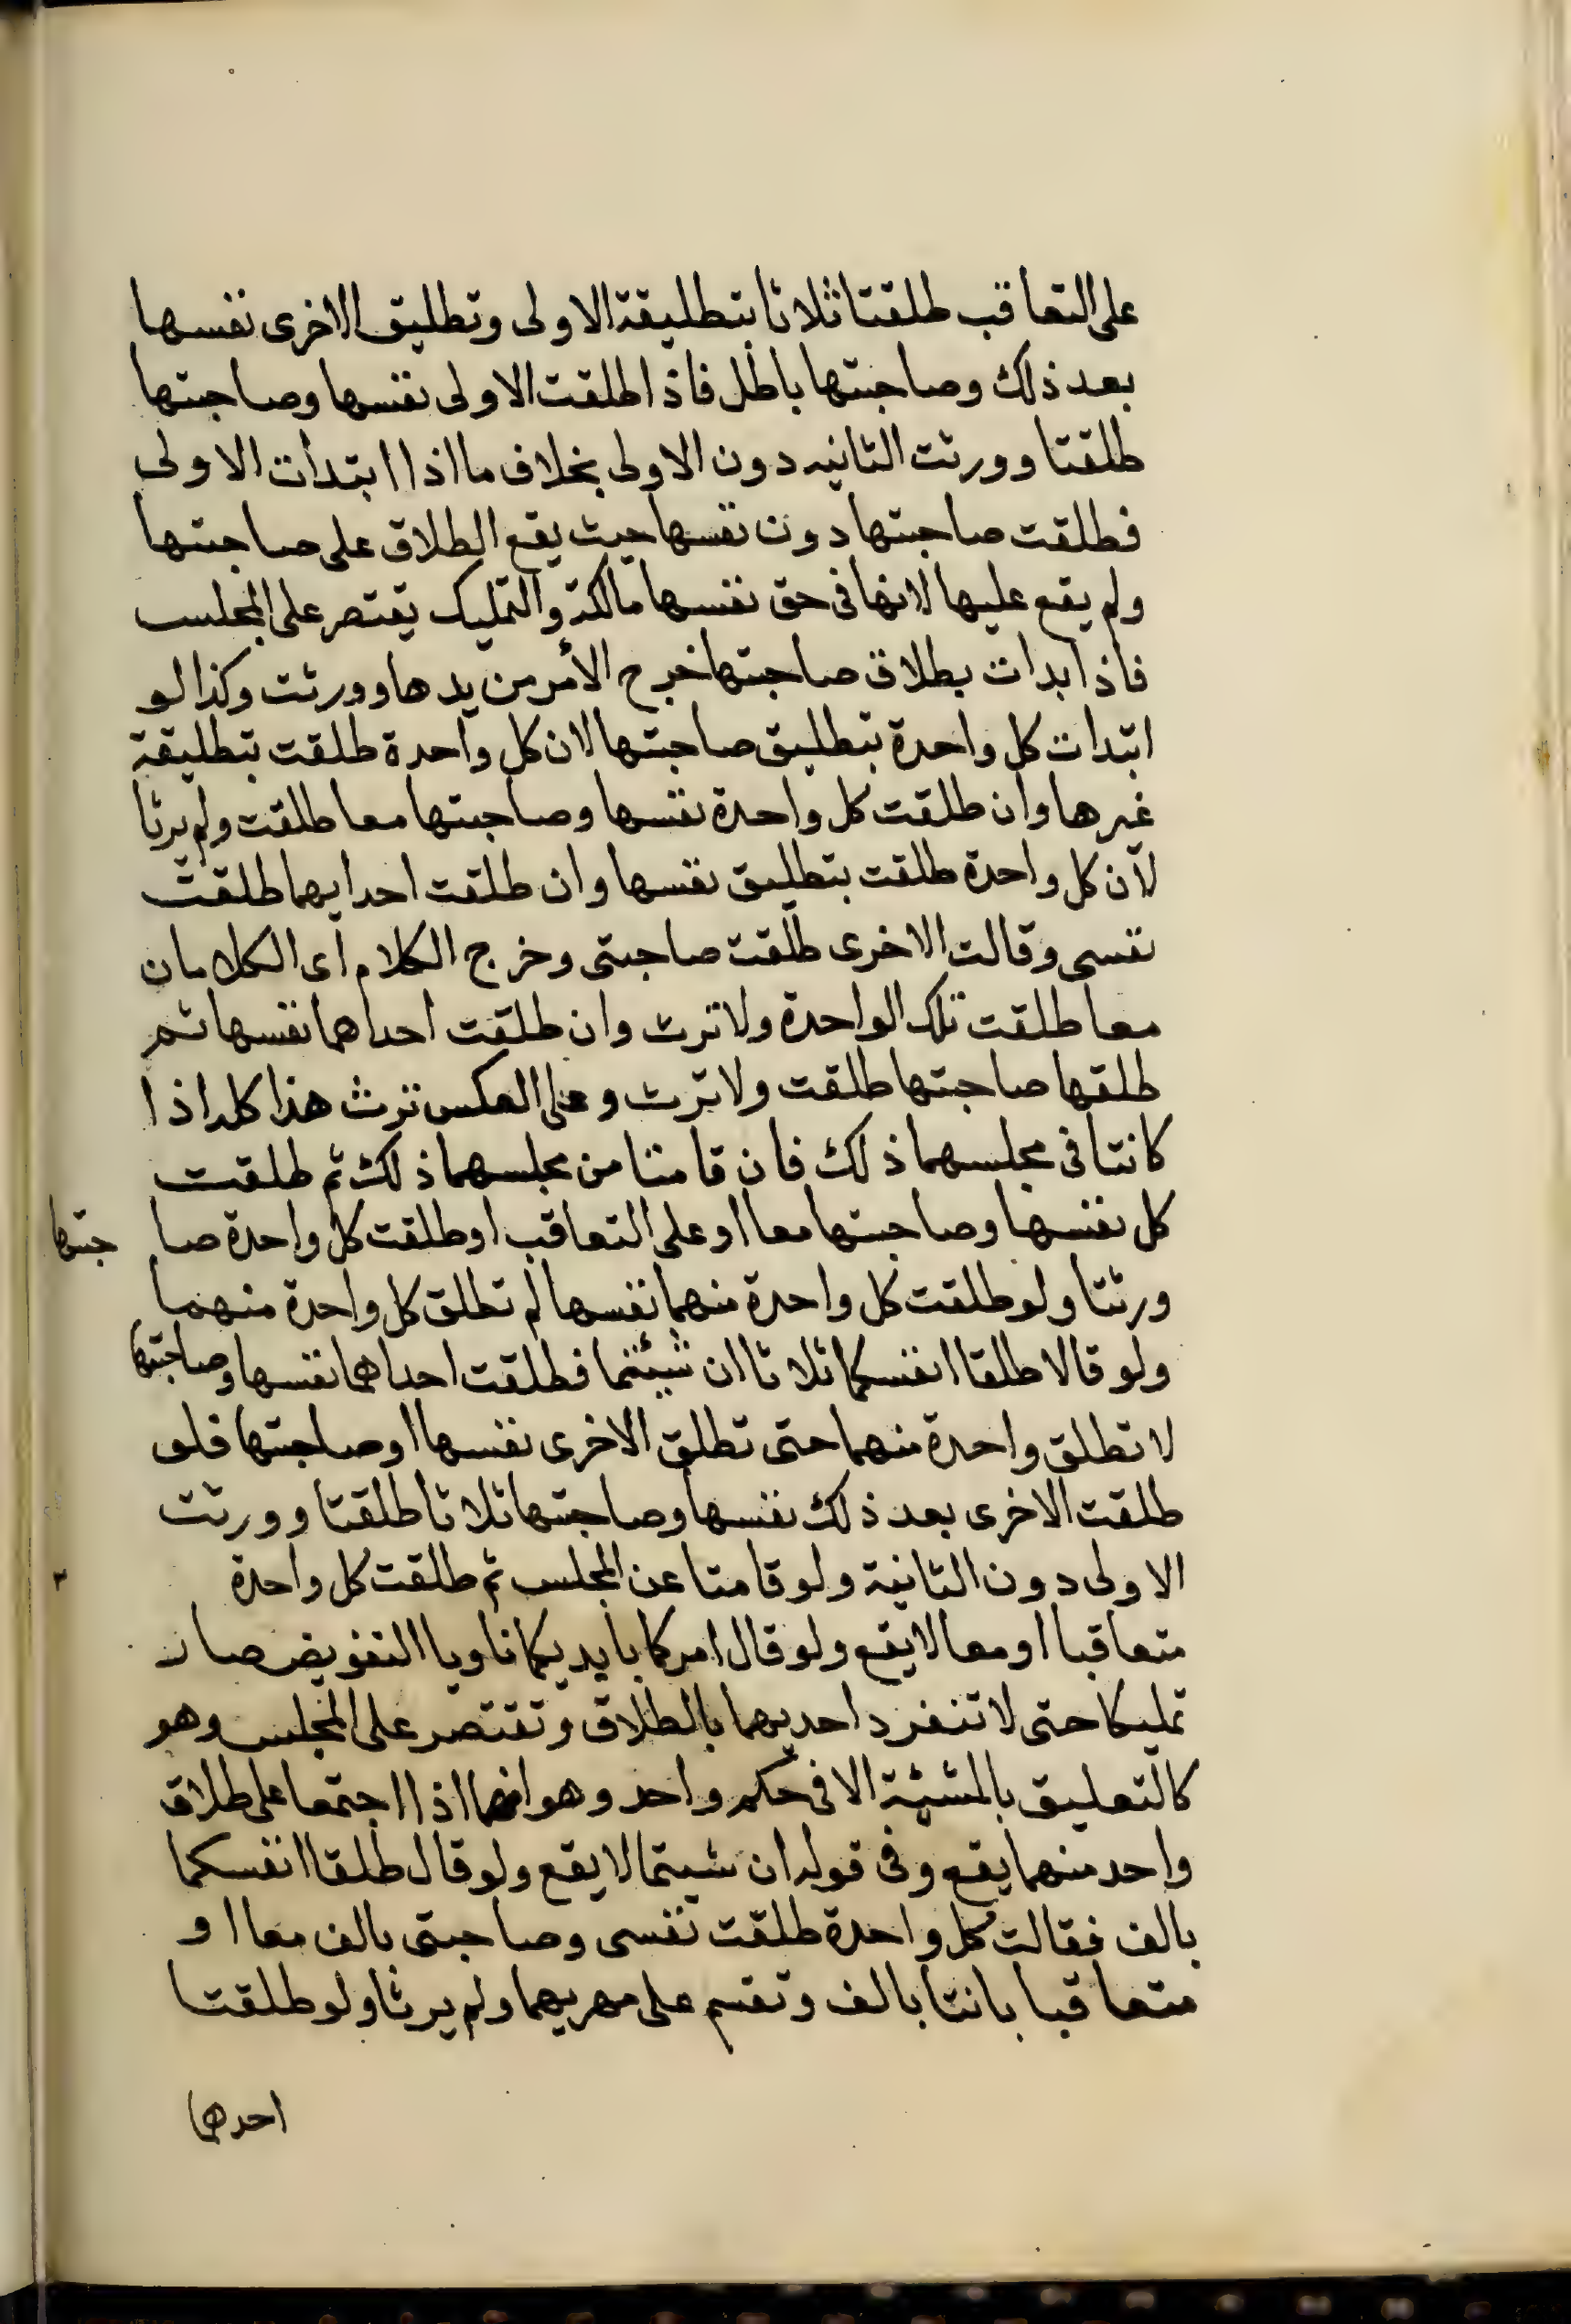 على التعاقب طلقتا ثلاثا بتطليقة الاولى وتطليق الاخرى نفسها
بعد ذلك وصاحبتها باطل فاذا طلقت الاولى نفسها وصاحبتها
طلقتا وورثت الثانيه دون الاولى بخلاف ما اذا ابتدات الاولى
فطلقت صاحبتها دون نفسها حيث يقع الطلاق على صاحبتها
ولم يقع عليها لانها فى حق نفسها مالكة والتمليك يقتصر على المجلس
فاذا بدات بطلاق صاحبتها خرج الأمر من يدها وورثت وكذا لو
ابتدات كل واحدة بتطليق صاحبتها لان كل واحدة طلقت بتطليقة
غيرها وان طلقت كل واحدة نفسها وصاحبتها معا طلقت ولم يرثا
لان كل واحدة طلقت بتطليق نفسها وان طلقت احدايهما طلقت
نفسى وقالت الاخرى طلقت صاحبتى وخرج الكلام اى الكلامان
معا طلقت تلك الواحدة ولا ترث وان طلقت احداهما نفسها ثم
طلقها صاحبتها طلقت ولا ترث وعلى العكس ترث هذا كله اذا
كانتا فى مجلسهما ذلك فان قامتا من مجلسهما ذلك ثم طلقت
كل نفسها وصاحبتها معا او على التعاقب او طلقت كل واحدة صا حبتها
ورثتا ولو طلقت كل واحدة منهما نفسها لم تطلق كل واحدة منهما
ولو قالا طلقا انفسكما ثلاثا ان شيئتما فطلقت احداهما نفسها وصاحبتها
لا تطلق واحدة منهما حتى تطلق الاخرى نفسها او صاحبتها فلو
طلقت الاخرى بعد ذلك نفسها وصاحبتها ثلاثا طلقتا وورثت
الاولى دون الثانية ولو قامتا عن المجلس ثم طلقت كل واحدة
متعاقبا او معا لا يقع ولو قال امركما بايديكما ناويا التفويض صار
تمليكا حتى لا تنفرد احديهما بالطلاق وتقتصر على المجلس وهو
كالتعليق بالمشيئة الا فى حكم واحد وهو انهما اذا اجتمعا على طلاق
واحد منهما يقع وفى قوله ان شيتما لا يقع ولو قال طلقا انفسكما
بالف فقالت كل واحدة طلقت نفسى وصاحبتى بالف معا او
متعاقبا بانتا بالف وتقسم على مهريهما ولم يرثا ولو طلقتا
احدهما